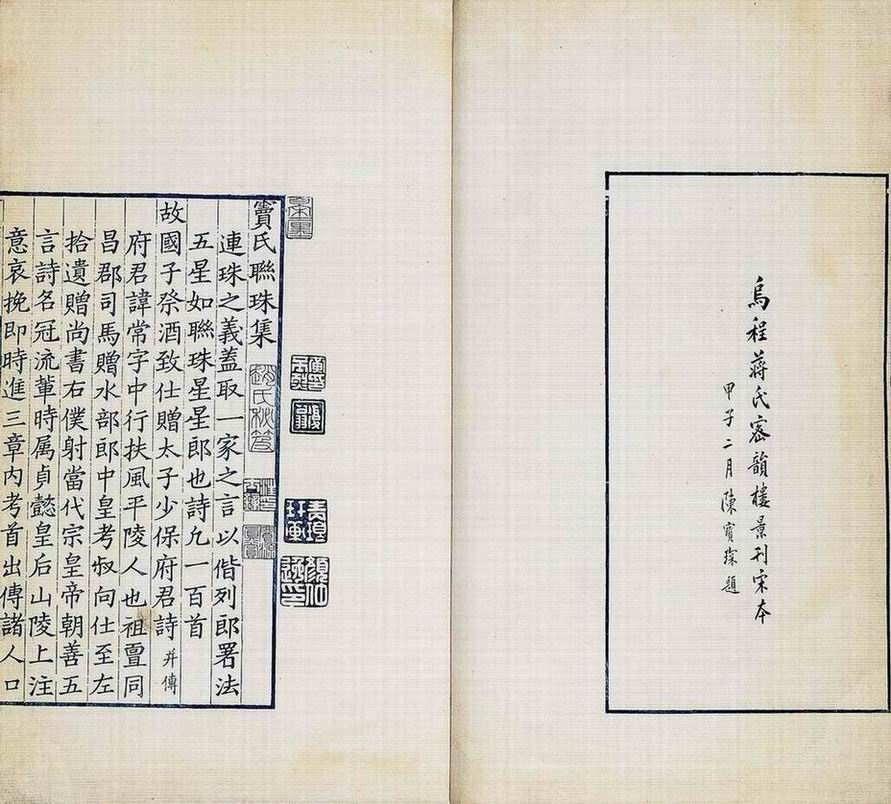 烏程蔣氏密韻樓景刊宋本
甲子二月陳寶琛題
竇氏聯珠集
連珠之義蓋取一家之言以偕列郎署法
五星如聯珠星星郎也詩凢一百首
故國子祭酒致仕贈太子少保府君詩并傳
府君諱常字中行扶風平陵人也祖亶同
昌郡司馬贈水部郎中皇考叔向仕至左
拾遺贈尚書右僕射當代宗皇帝朝善五
言詩名冠流輩時属貞懿皇后山陵上注
意哀挽即時進三章内考首出傳諸人口
趙氏秘笈